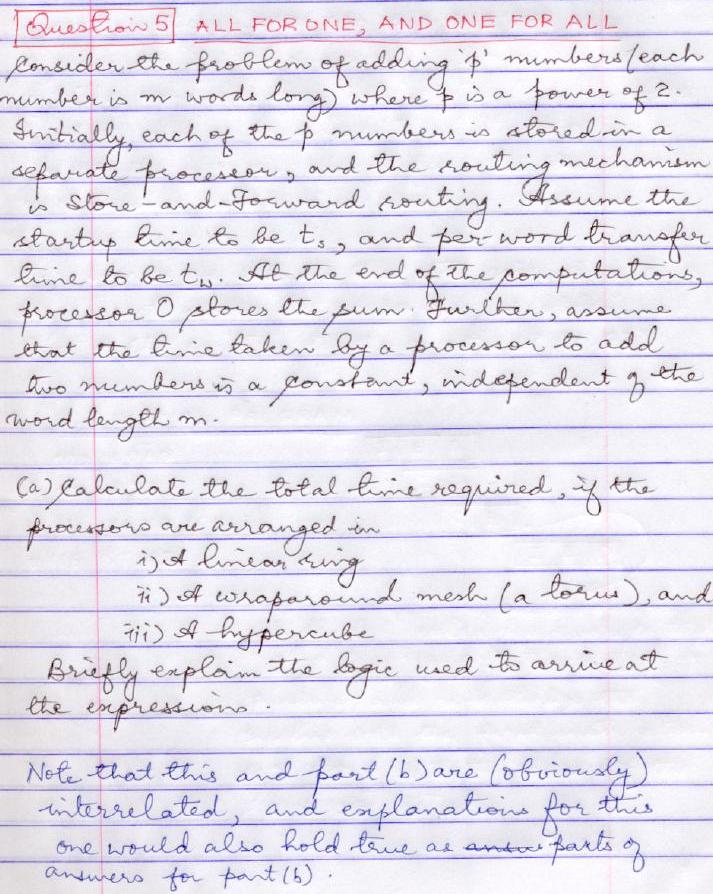 Question 5 ALL FOR ONE, AND ONE FOR ALL
Consider the problem of adding 'p' numbers (each
number is m words long) where p is a power of 2.
Initially, each of the p numbers is stored in a
separate processor, and the routing mechanism
is Store-and-Forward routing. Assume the
startup time to be ts, and per word transfer
time to be tw. At the end of the computations,
processor 0 stores the sum. Further, assume
that the time taken by a processor to add
two numbers is a constant, independent of the
word length m.
(a) Calculate the total time required, if the
processors are arranged in
i) A linear ring
ii) A wraparound mesh (a torus), and
iii) A hypercube
Briefly explain the logic used to arrive at
the expressions.
Note that this and part (b) are (obviously)
interrelated, and explanations for this
one would also hold true as parts of
answers for part (b).